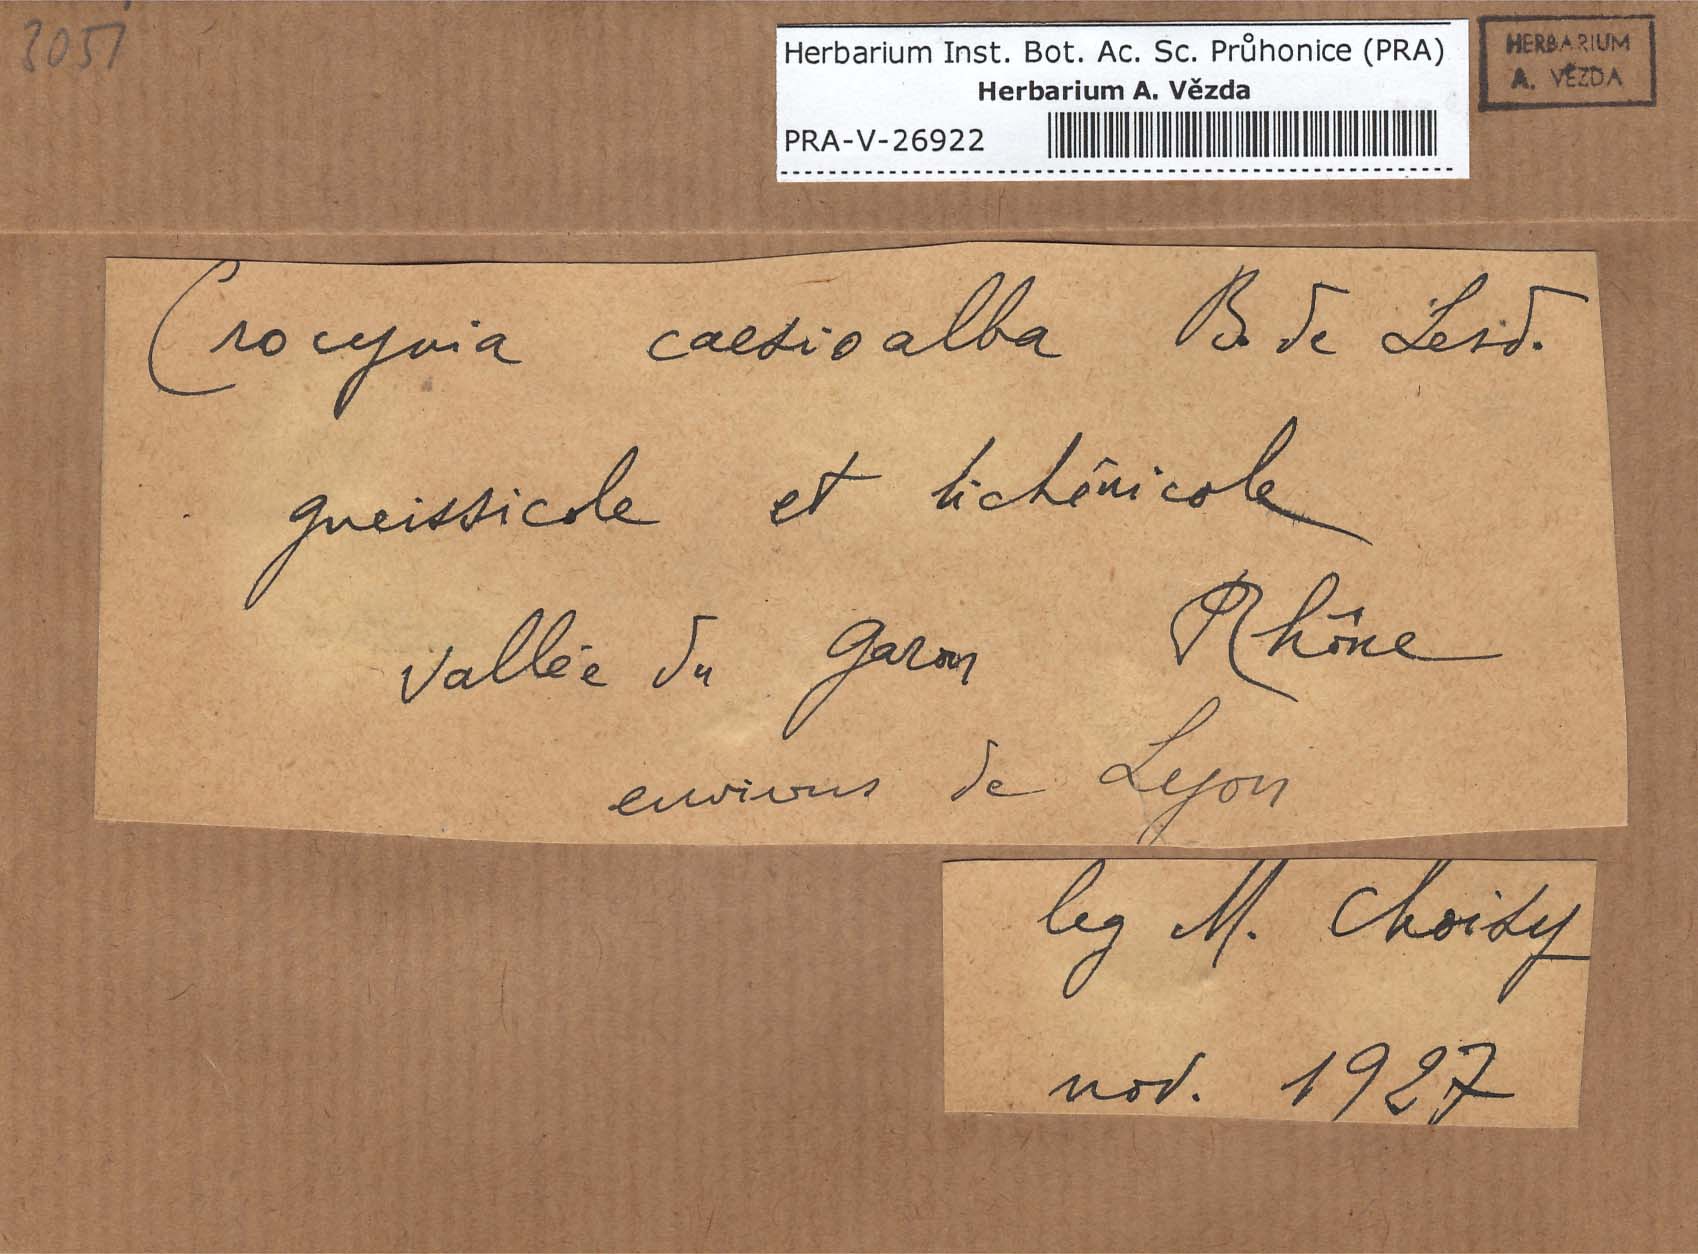 3051
Herbarium Inst. Bot. Ac. Sc. Průhonice (PRA)
Herbarium A. Vězda
PRA-V-26922
HERBARIUM
A. VĚZDA
Crocynia caesioalba B. de Lesd.
gneissicole et lichénicole
vallée du Garon Rhône
environs de Lyon
leg M. Choisy
nov. 1927